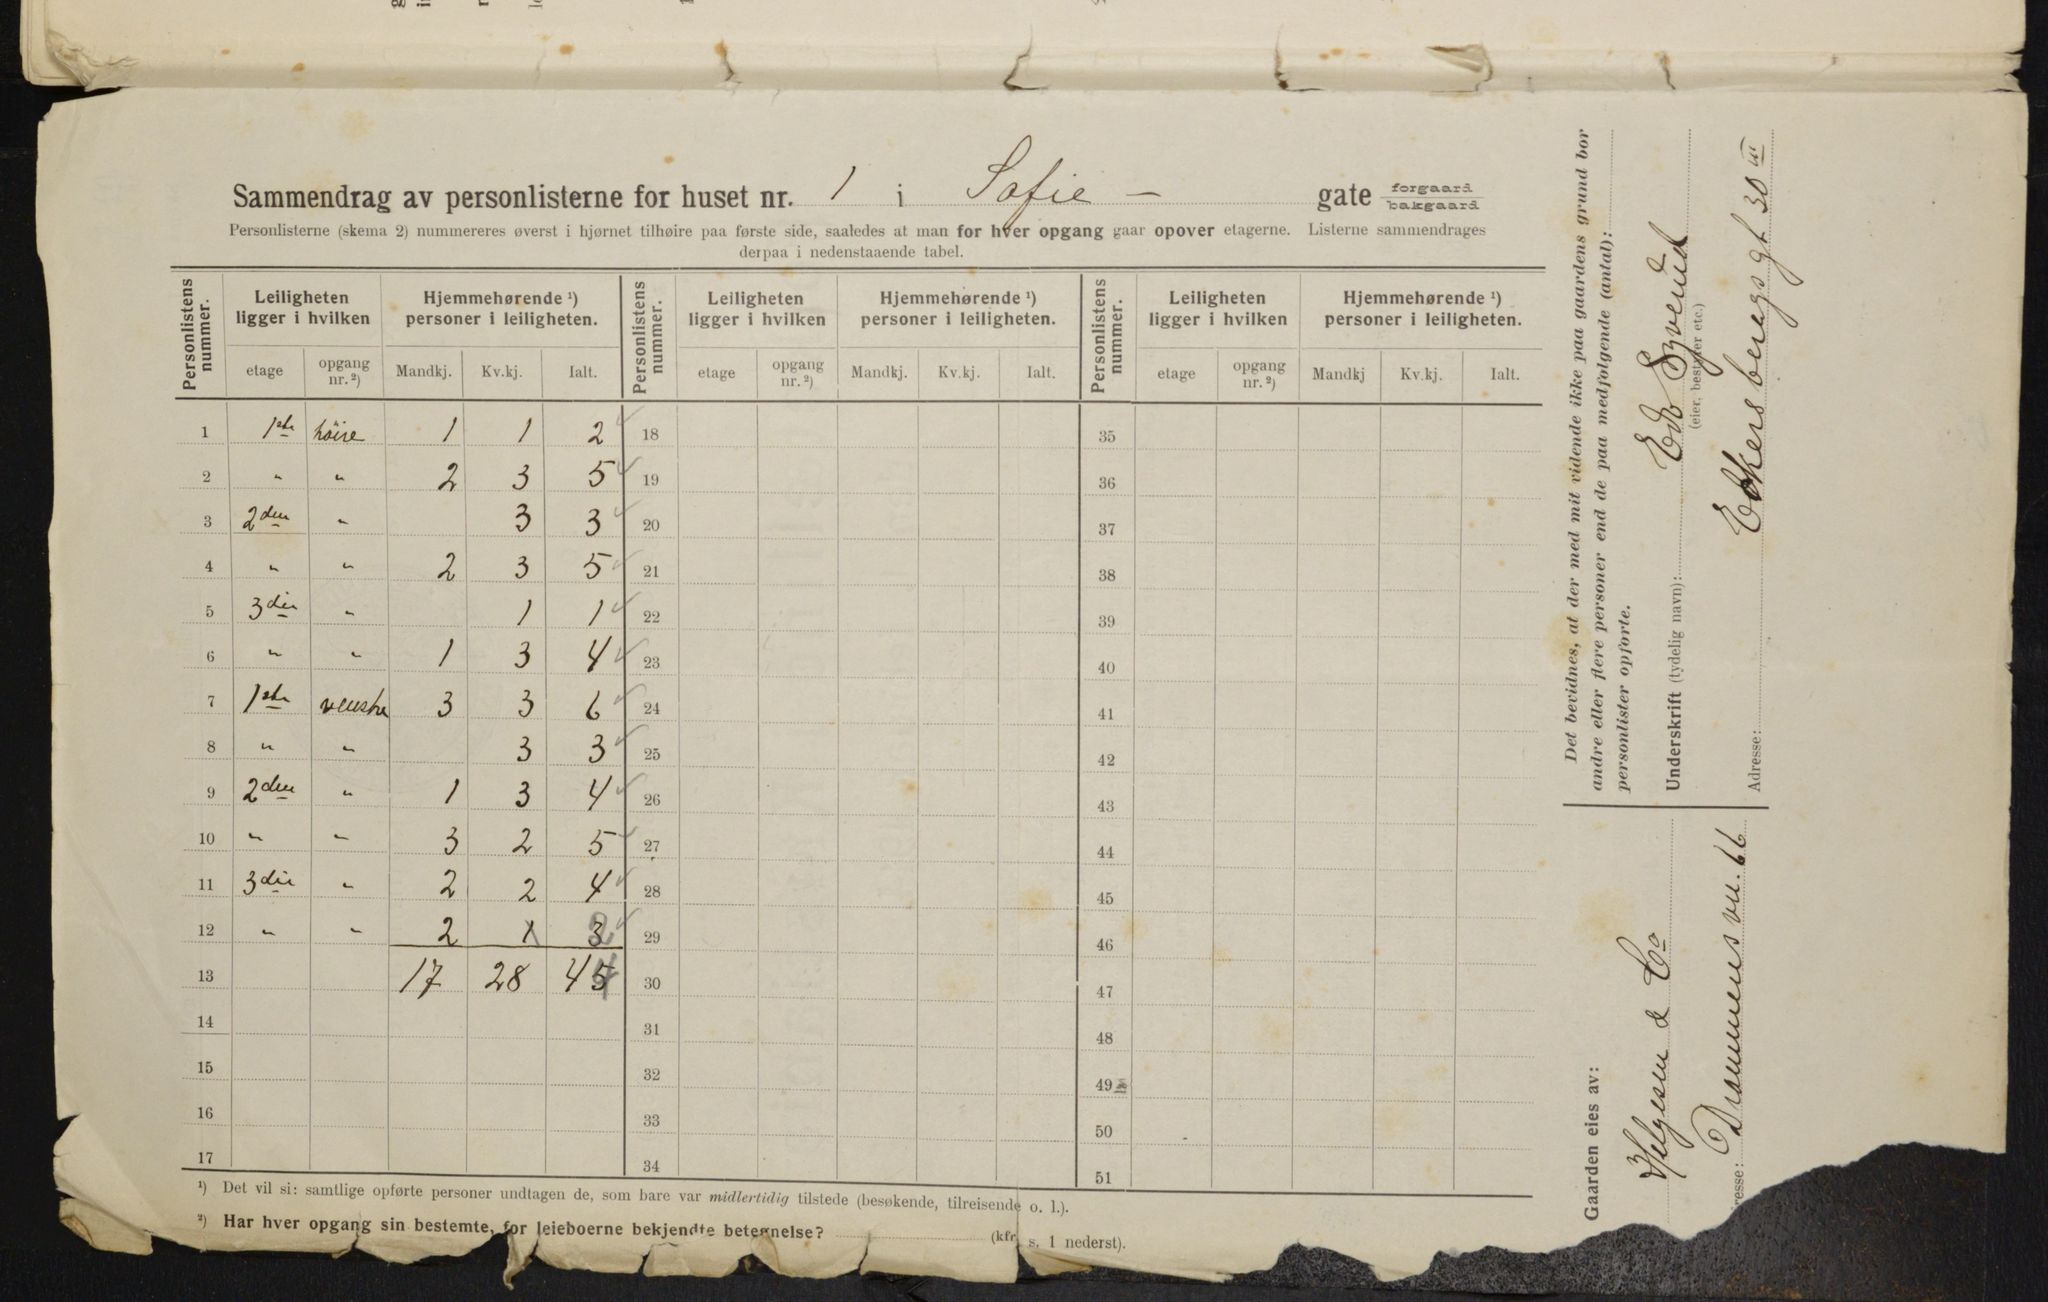 Sammendrag av personlisterne for huset nr. 1 i Sofie – gate forgaard bakgaard
Personlisterne (skema 2) nummereres øverst i hjørnet tilhøire paa første side, saaledes at man for hver opgang gaar opover etagerne. Listerne sammendrages
derpaa i nedenstaaende tabel.
Personlistens nummer. Leiligheten ligger i hvilken Hjemmehørende ¹) personer i leiligheten. Personlistens nummer. Leiligheten ligger i hvilken Hjemmehørende ¹) personer i leiligheten. Personlistens nummer. Leiligheten ligger i hvilken Hjemmehørende ¹) personer i leiligheten.
etage opgang nr. ²) Mandkj. Kv.kj. Ialt. etage opgang nr. ²) Mandkj. Kv.kj. Ialt. etage opgang nr. ²) Mandkj Kv.kj. Ialt.
1 1ste høire 1 1 2 18 35
2 " " 2 3 5 19 36
3 2den " 3 3 20 37
4 " " 2 3 5 21 38
5 3die " 1 1 22 39
6 " " 1 3 4 23 40
7 1ste venstre 3 3 6 24 41
8 " " 3 3 25 42
9 2den " 1 3 4 26 43
10 " " 3 2 5 27 44
11 3die " 2 2 4 28 45
12 " " 2 1 3 2 29 46
13 17 28 45 4 30 47
14 31 48
15 32 49
16 33 50
17 34 51
¹) Det vil si: samtlige opførte personer undtagen de, som bare var midlertidig tilstede (besøkende, tilreisende o. l.).
²) Har hver opgang sin bestemte, for leieboerne bekjendte betegnelse? (kfr. s. 1 nederst).
Det bevidnes, at der med mit vidende ikke paa gaardens grund bor
andre eller flere personer end de paa medfølgende (antal):
personlister opførte.
Underskrift (tydelig navn):
(eier, bestyrer etc.)
Adresse: Eckersbergsgt 30 III
Gaarden eies av:
Helgesen & Co
resse: Drammensvn. 66